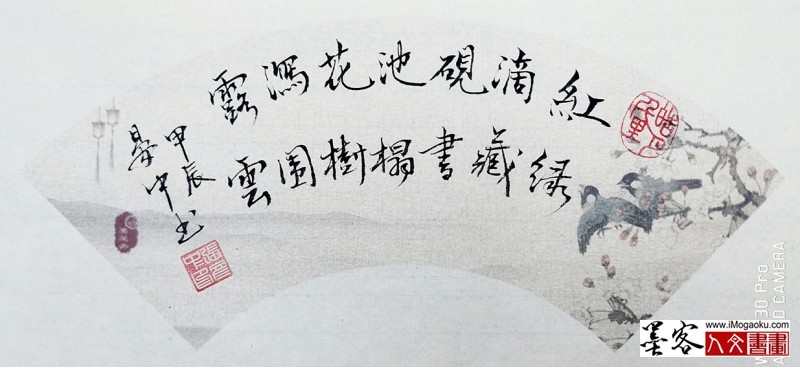 紅滴硯池花瀉露
綠藏書榻樹團雲
甲辰
中书
30 Pro
CAMERA
墨客
www.iMogaoku.com
人文書畫